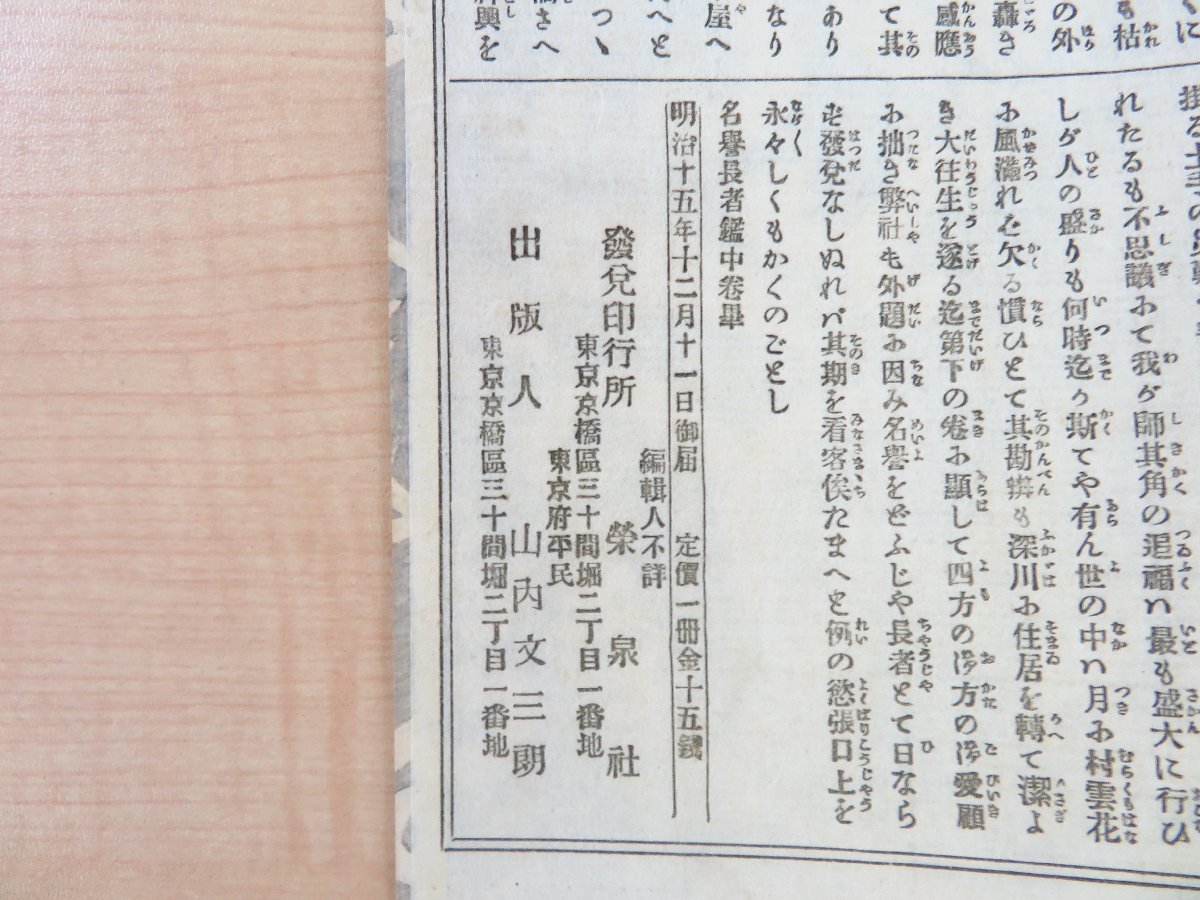 くに
も枯
の外
轟き
感應
て其
あり
なり
屋へ
へと
つゝ
れたるも不思議みて我ガ師其角の追福ハ最も盛大に行ひ
しガ人の盛りも何時迄か斯てや有ん世の中ハ月み村雲花
み風滿れば欠る慣ひとて其勘辨も深川み住居を轉て潔よ
き大往生を遂る迄第下の卷み顯して四方の諸方の御愛顧
み拙き弊社も外題み因み名譽をどふじや長者とて日なら
ず發兌なしぬれバ其期を看客俟たまへと例の慾張口上を
永々しくもかくのごとし
名譽長者鑑中卷畢
明治十五年十二月十一日御届 定價一冊金十五錢
編輯人不詳
發兌印行所 榮泉社
東京京橋區三十間堀二丁目一番地
東京府平民
出版人 山内文三朗
東京京橋區三十間堀二丁目一番地